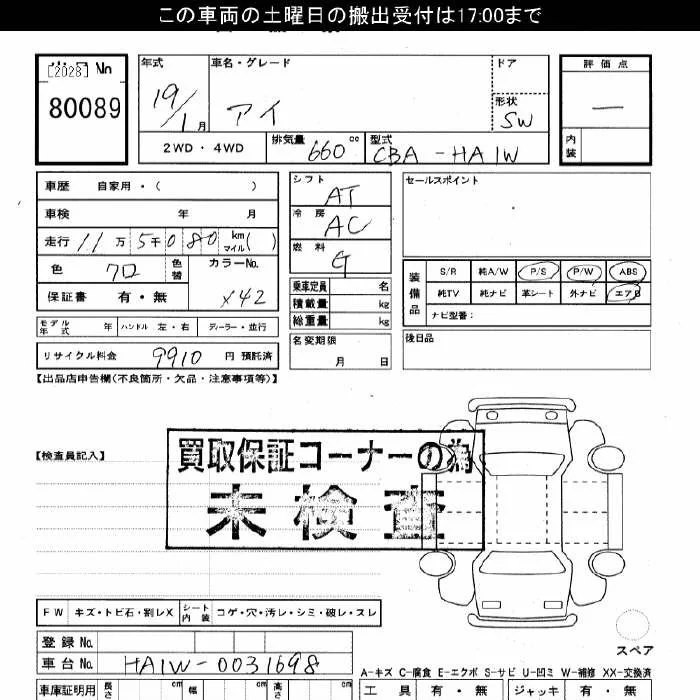 この車両の土曜日の搬出受付は17:00まで
[2028] No
80089
年式 19/1月
車名・グレード アイ
ドア
形状 SW
評価点 —
内装
2WD・4WD
排気量 660 cc
型式 CBA-HA1W
車歴 自家用・( )
車検 年 月
走行 11万5千080 km マイル( )
色 クロ 色替
カラーNo. X42
保証書 有・無
モデル年式 年 ハンドル 左・右 ディーラー・並行
リサイクル料金 9910 円 預託済
シフト AT
冷房 AC
燃料 G
乗車定員 名
積載量 kg
総重量 kg
名変期限 月 日
セールスポイント
装備品
S/R 純A/W P/S P/W ABS
純TV 純ナビ 革シート 外ナビ エアB
ナビ型番:
後日品
【出品店申告欄(不良箇所・欠品・注意事項等)】
【検査員記入】
買取保証コーナーの為
未検査
FW キズ・トビ石・割レX シート内装 コゲ・穴・汚レ・シミ・破レ・スレ
スペア
登録No.
車台No. HA1W-0031698
A-キズ C-腐食 E-エクボ S-サビ U-凹ミ W-補修 XX-交換済
車庫証明用 長さ cm 幅 cm 高さ cm
工具 有・無 ジャッキ 有・無